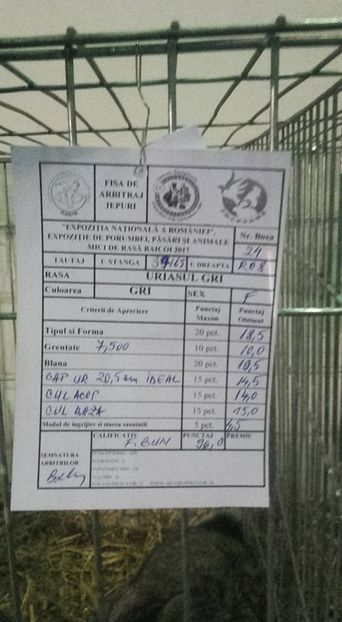 FISA DE
ARBITRAJ
IEPURI
"EXPOZIȚIA NAȚIONALĂ A ROMÂNIEI",
EXPOZIȚIE DE PORUMBEI, PĂSĂRI ȘI ANIMALE
MICI DE RASĂ BAICOI 2017
Nr. Boxa
24
TATUAJ U STANGA U DREAPTA RO8
RASA URIASUL GRI
Culoarea GRI SEX F
Criterii de Apreciere Punctaj Maxim Punctaj Obtinut
Tipul si Forma 20 pct. 18,5
Greutate 7,500 10 pct. 10,0
Blana 20 pct.
CAP UR 20,5 cm IDEAL 15 pct. 14,5
CUL ACOP 15 pct. 14,0
CUL BAZA 15 pct. 15,0
Modul de ingrijire si starea sanatatii 5 pct. 4,5
CALIFICATIV F. BUN PUNCTAJ 96,0 PREMIU
SEMNATURA
ARBITRILOR